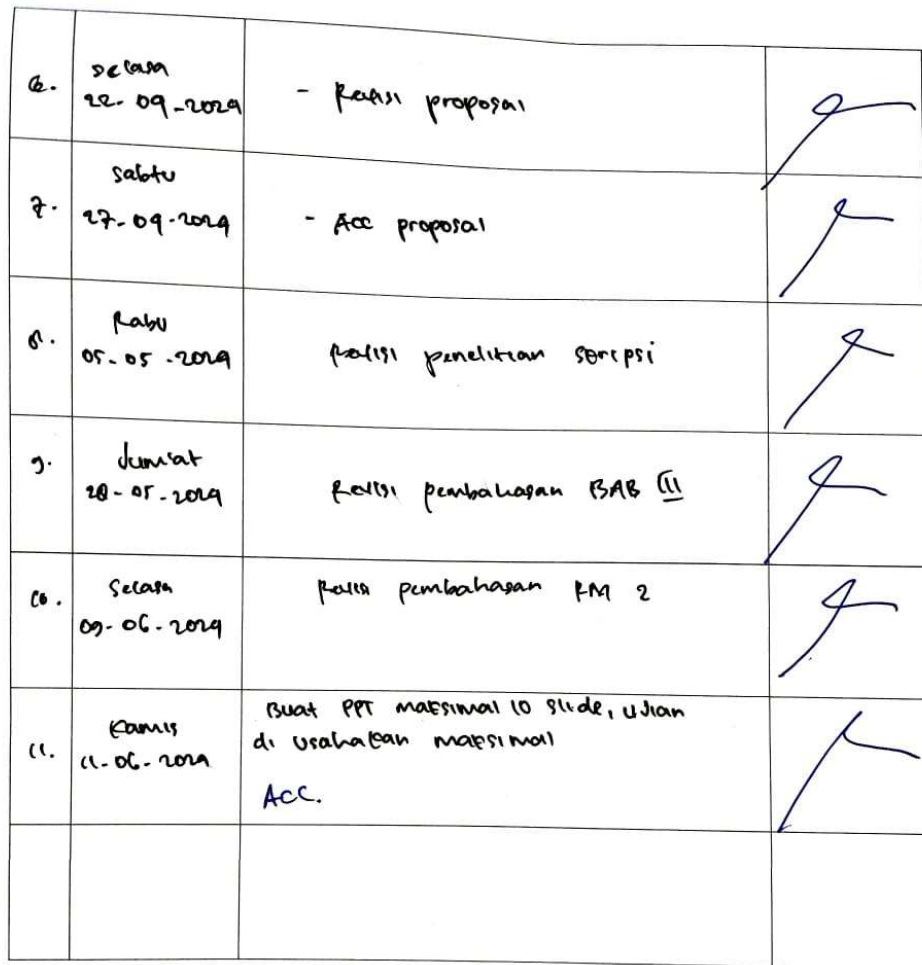 6.
Selasa
22-09-2024
- Revisi proposal
7.
Sabtu
27-09-2024
- Acc proposal
8.
Rabu
05-05-2024
Revisi penelitian scripsi
9.
Jum'at
28-05-2024
Revisi pembahasan BAB III
10.
Selasa
09-06-2024
Revisi pembahasan RM 2
11.
Kamis
11-06-2024
Buat PPT maksimal 10 slide, ujian
di usahakan maksimal
ACC.